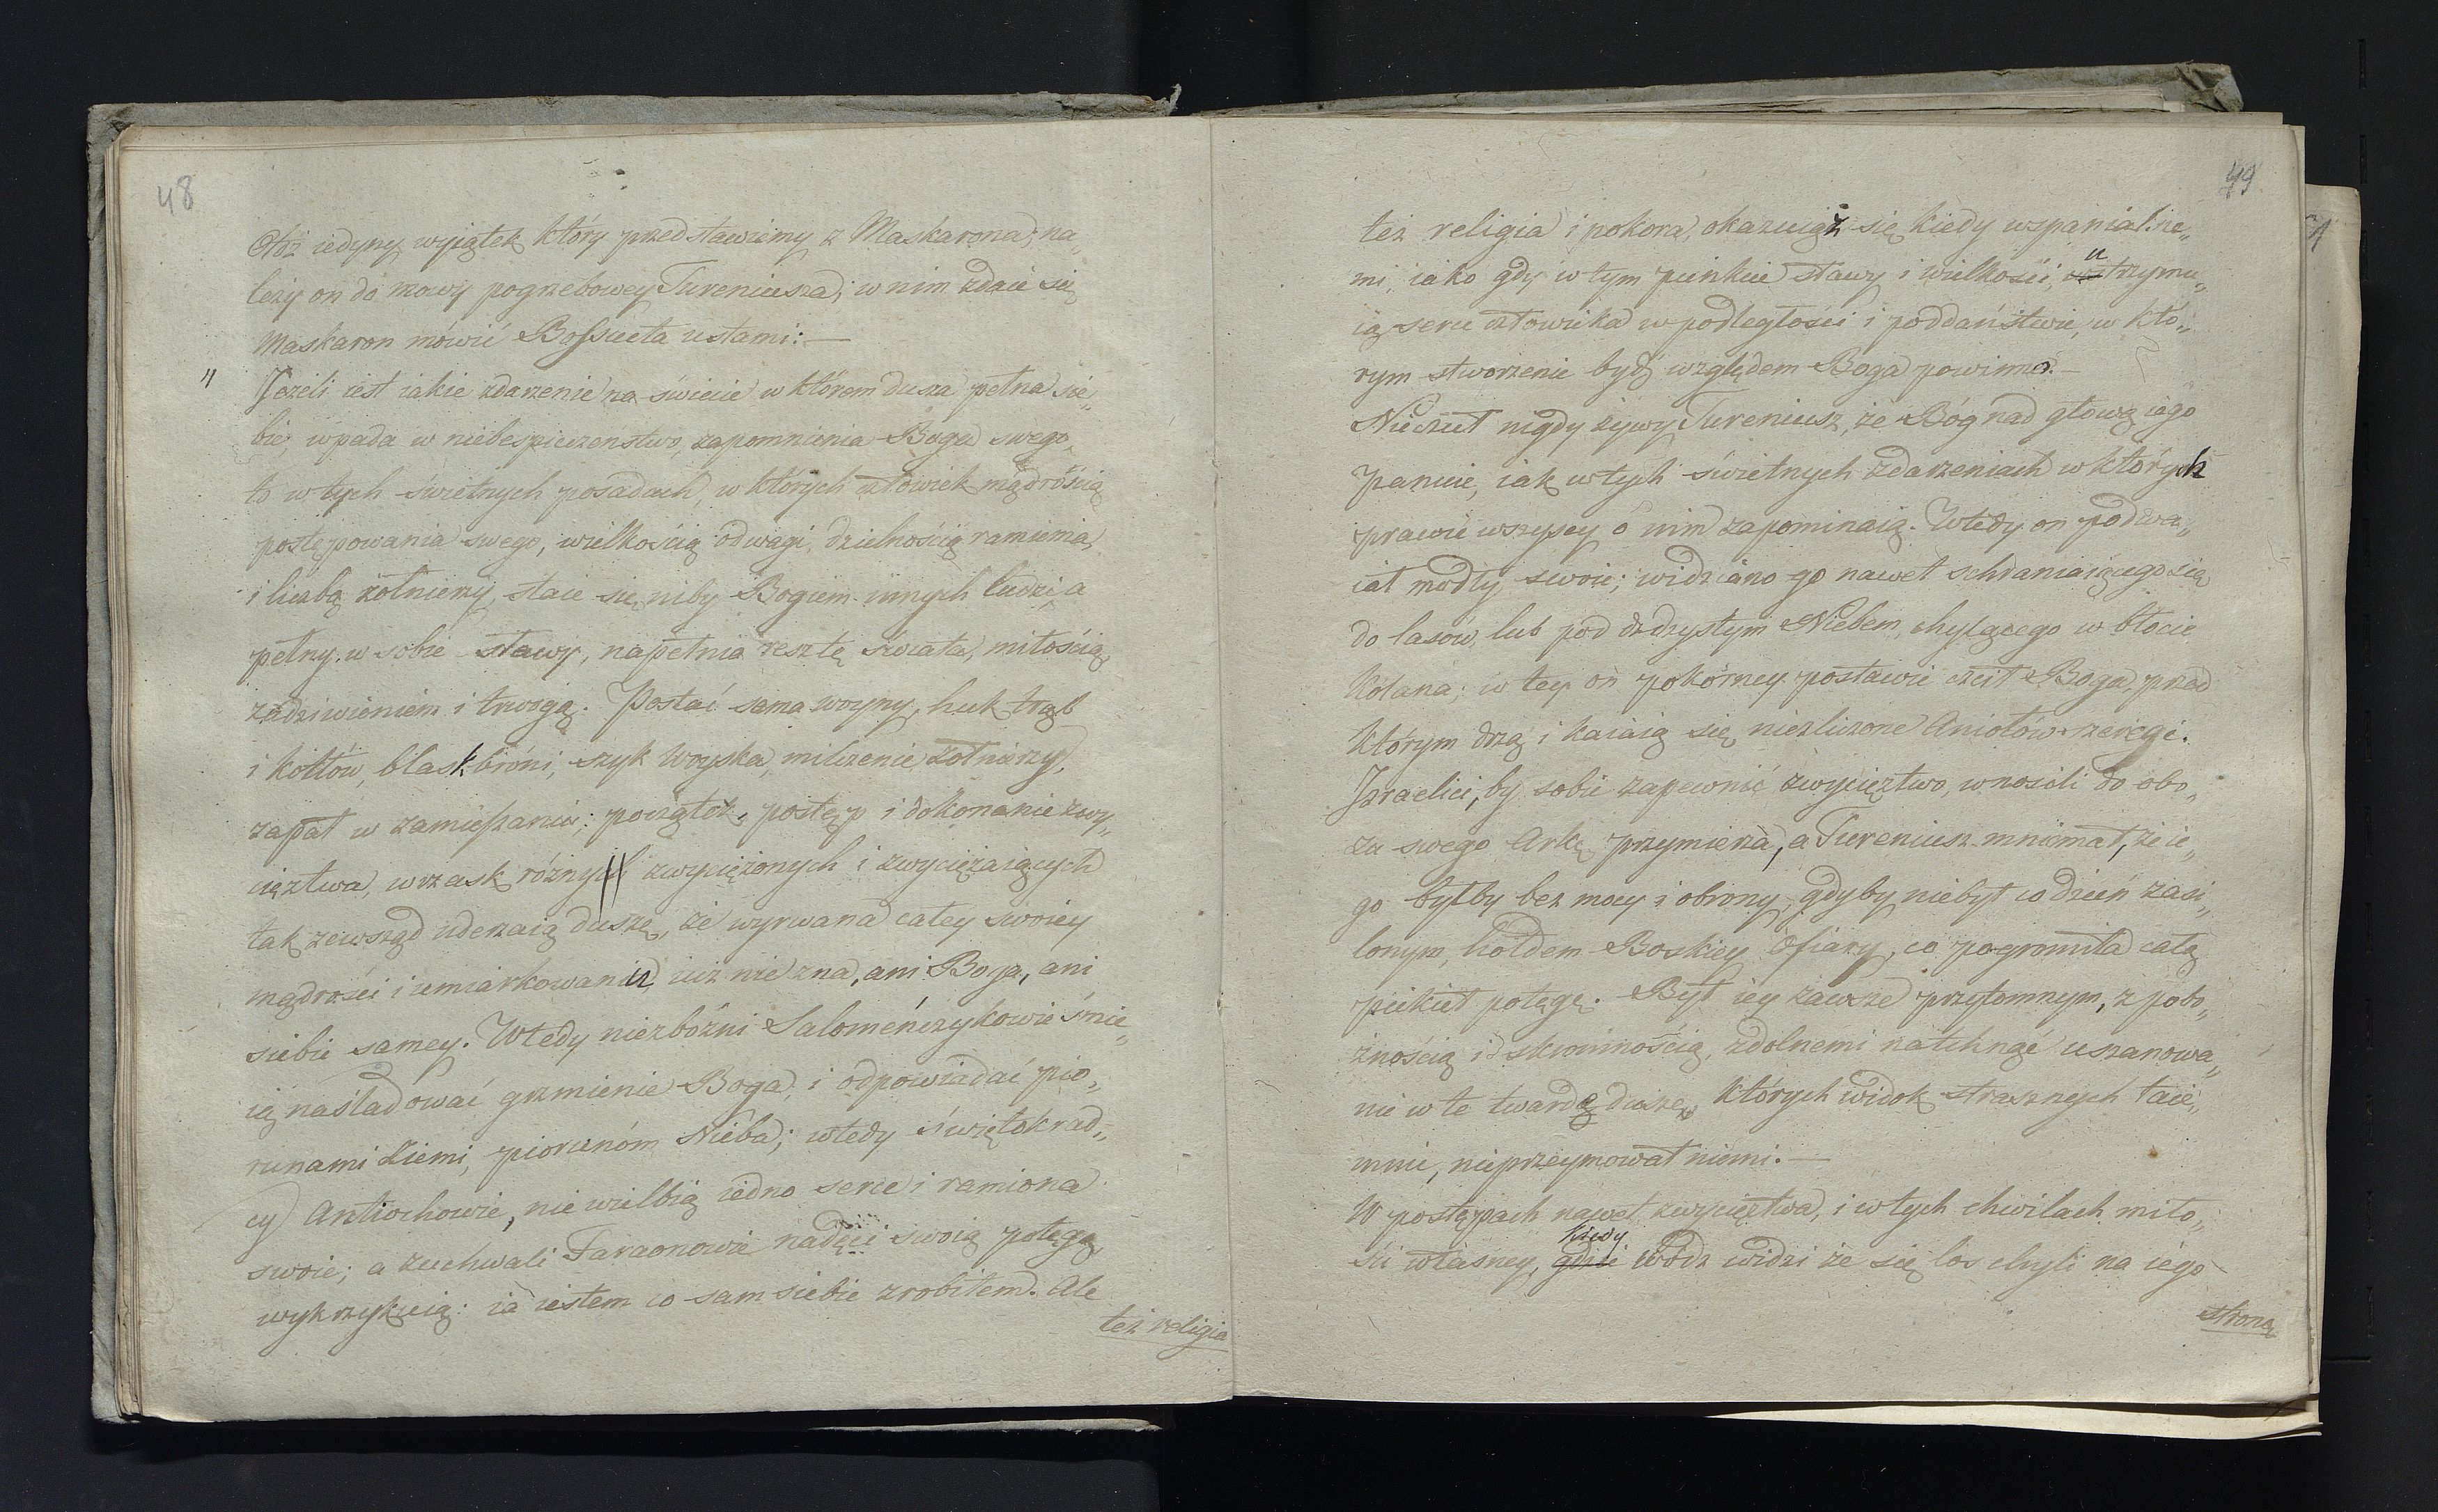 48
Otoż iedyny wyiątek który przedstawiemy z Maskarona, na„
leży on do mowy pogrzebowey Tureniusza; w nim zdaie się
Maskaron mówić Bossueta ustami:—
„ Jeżeli iest iakie zdarzenie na świecie w którem dusza pełna sie„
bie, wpada w niebespieczenstwo, zapomnienia Boga swego,
to w tych świetnych posadach, w których człowiek mądróścią
postępowania swego, wielkością odwagi, dzielnością ramienia,
i liczbą żołnierzy, staie się niby Bogiem innych ludzi, a
pełny w sobie sławy, napełnia resztę świata, miłością,
zadziwieniem i trwogą. Postać sama woyny, huk trąb
i kotłów, blask broni, szyk woyska, milczenie żołnierzy,
zapał w zamieszaniu; początek, postęp i dokonanie zwy„
cięztwa, wrzask różnych zwyciężonych i zwyciężaiących
tak zewsząd uderzaią duszę, że wyrwana całey swoiey
mądrości i umiarkowaniu, iuż nie zna, ani Boga, ani
siebie samey. Wtedy niezbożni Salomeńczykowie śmie„
ią naśladować grzmienie Boga, i odpowiadać pio„
runami Ziemi, piorunóm Nieba; wtedy świętokrad„
cy Antiochowie, nie wielbią iedno serce i ramiona
swoie; a zuchwali Faraonowie nadęci swoią potęgą,
wykrzykuią: ia iestem co sam siebie zrobiłem. Ale
też religia
49
też religia i pokora, okazuiąż się kiedy wspanialsze„
mi, iako gdy w tym punkcie sławy i wielkości, utrzymu„
ią serce człowieka w podległości i poddaństwie, w któ„
rym stworzenie bydź względem Boga powinno.—
Nieczuł nigdy żywy Tureniusz, że Bóg nad głową iego
panuie, iak w tych świetnych zdarzeniach w których
prawie wszyscy o nim zapominaią. Wtedy on podwa„
iał modły swoie; widziano go nawet schraniaiącego się
do lasów, lub pod dżdżystym Niebem, chylącego w błocie
kolana; w tey on pokórney postawie czcił Boga, przed
którym drżą i kaiaią się niezliczone Aniołów szeregi.
Jzraelici, by sobie zapewnić zwycięztwo, wnosili do obo„
zu swego Arkę przymierza, a Tureniusz mniemał, że ie„
go byłby bez mocy i obrony, gdyby niebył co dzień zasi„
lonym, hołdem Boskiey Ofiary, co pogromiła całą
piekieł potęgę. Był iey zawsze przytomnym, z pobo„
żnością i skromnością, zdolnemi natchnąć uszanowa„
nie w te twarde dusze, których widok strasznych taie„
mnic, nieprzeymował niemi.—
W postępach nawet zwycięztwa, i w tych chwilach miło„
ści własney, gdzie kiedy wódz widzi że się los chyli na iego
stronę